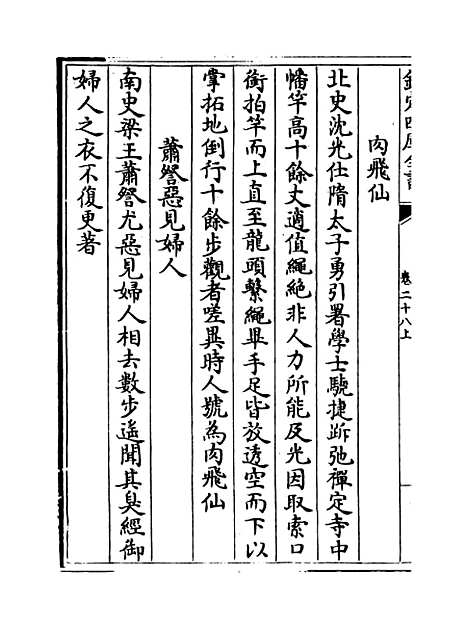 欽定四庫全書
卷二十八上
肉飛仙
北史沈光仕隋太子勇引署學士驍捷跅弛禪定寺中
幡竿高十餘丈適值繩絶非人力所能及光因取索口
銜拍竿而上直至龍頭繫繩畢手足皆放透空而下以
掌拓地倒行十餘步觀者嗟異時人號為肉飛仙
蕭詧惡見婦人
南史梁王蕭詧尤惡見婦人相去數步遙聞其臭經御
婦人之衣不復更著